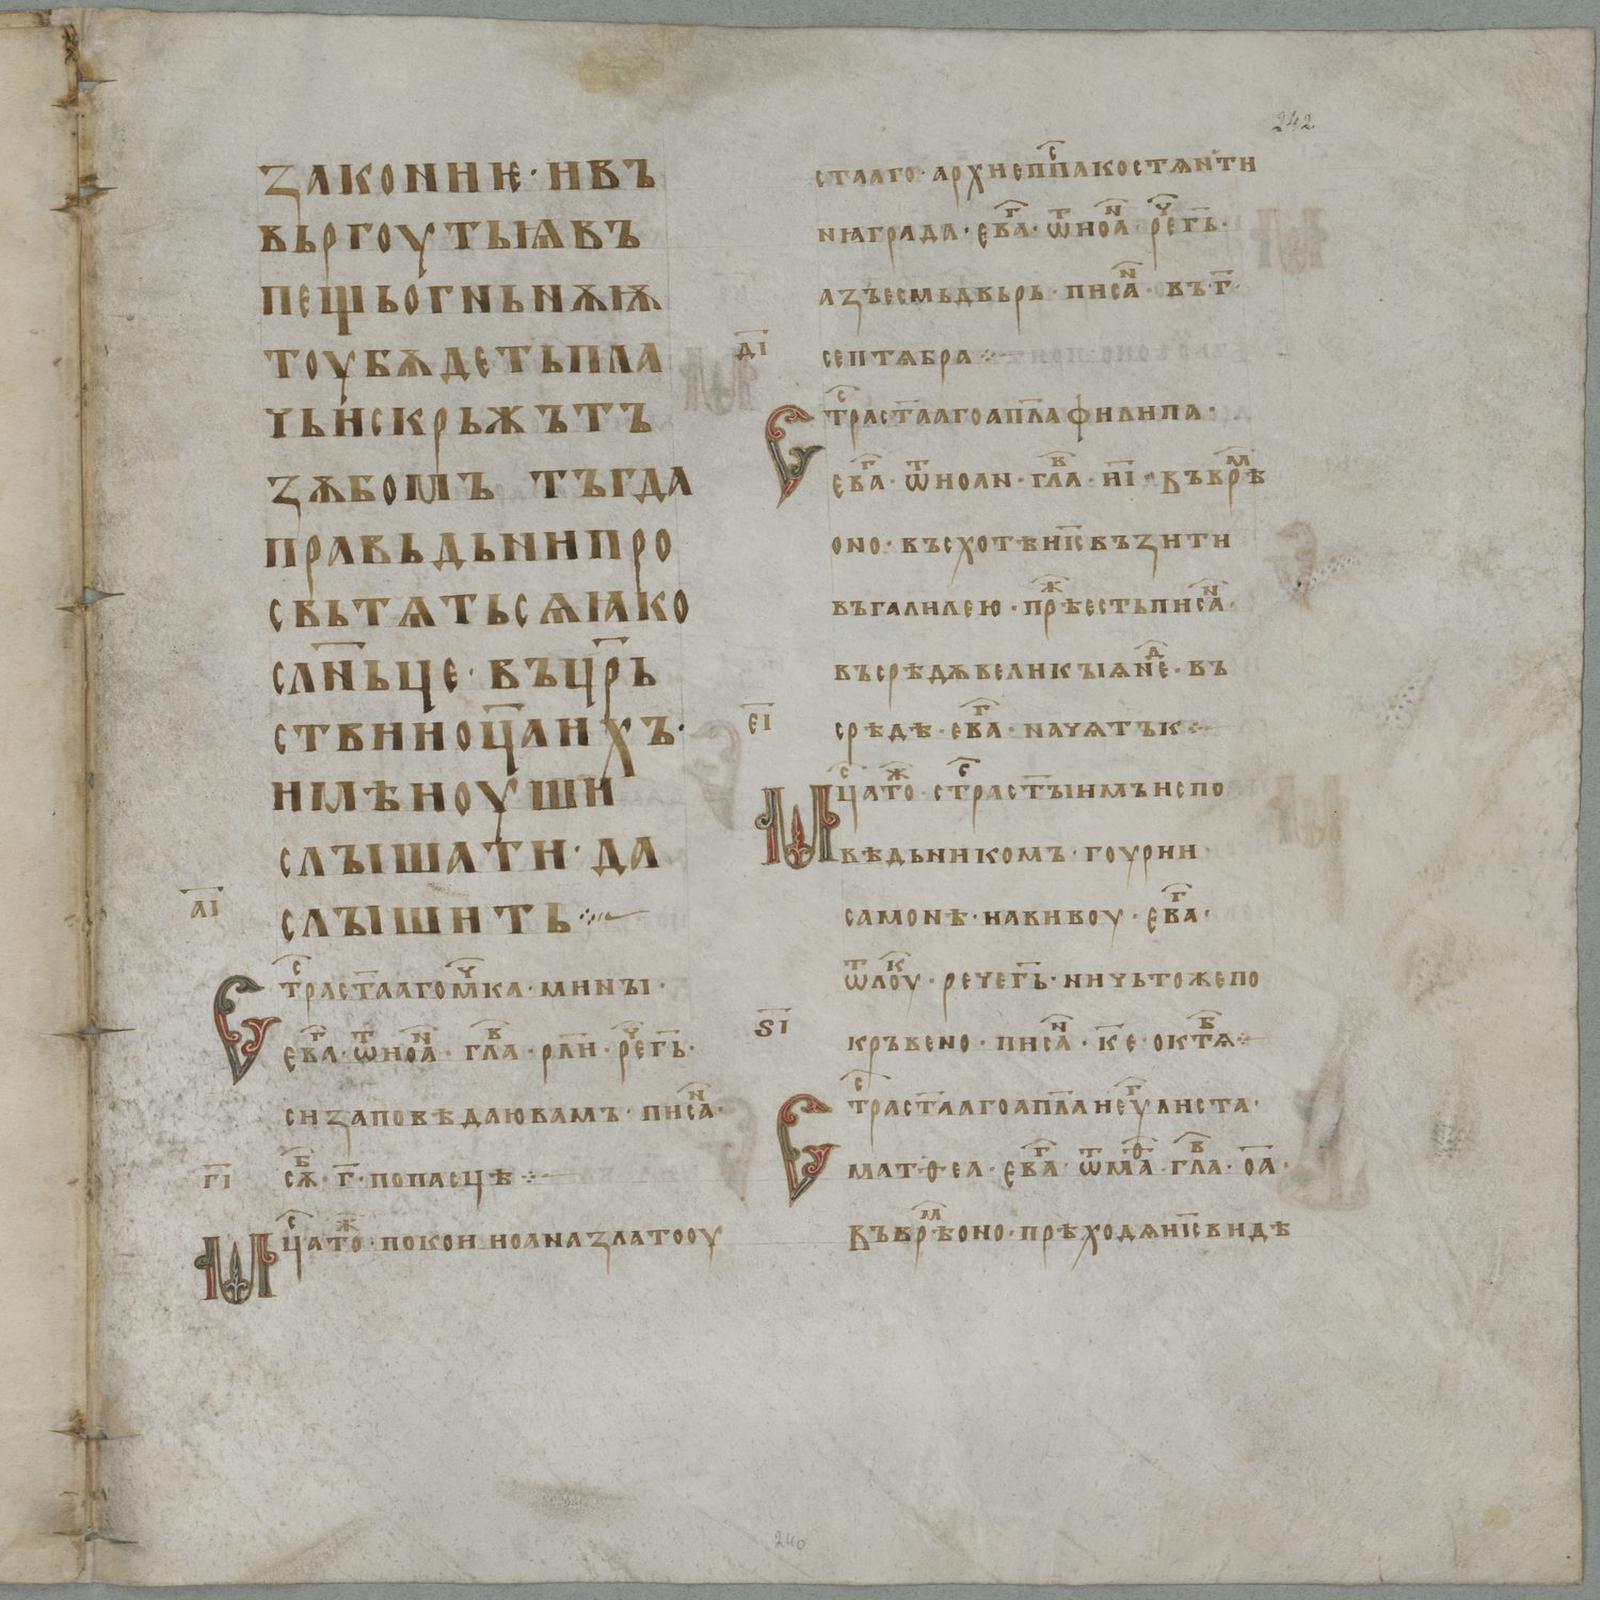 242
закониѥ· и въ
вьргоуть ѩ въ
пещь огньнѫѭ
тоу бѫдеть пла
чь и скрьжътъ
зѫбомъ тъгда
правьдьнии про
свьтѧтьсѧ ꙗко
слн҃ьце· въ цр҃ь
ствии оц҃а ихъ·
имѣꙗи оуши
слышати· да
слышить
а҃і
стрⷭ҇ас ст҃ааго мⷱ҇ка· мины·
еваⷢ҇· ѿ иоаⷩ҇· глⷡ҇а· рл҃и· реⷱ҇ г҃ь·
си заповѣдаю вамъ· писаⷩ҇·
сѫⷠ҇· г҃· по пасцѣ
г҃і
мцⷭ҇а тоⷤ· покои иоана златооу
стааго· архиепⷭ҇па костѧнти
нꙗ града· еваⷢ҇· ѿ иоаⷩ҇· реⷱ҇ г҃ь·
азъ есмь двьрь· писаⷩ҇· въ г҃·
септѧбра
д҃і
стрⷭ҇ас ст҃ааго ап҃ла филипа·
еваⷢ҇· ѿ иоан· глⷡ҇а· н҃і· въ врⷨѣ
оно· въсхотѣ іс҃ възити
въ галилею· прⷤѣ есть писаⷩ҇·
въ срѣдѫ великыѧ неⷣ· въ
срѣдѣ· еваⷢ҇· начѧтък
е҃і
мцⷭ҇а тоⷤ· стрⷭ҇ас ст҃ыимъ испо
вѣдьникомъ· гоурии
самонѣ· и авивоу· еваⷢ҇·
ѿ лоуⷦ· рече г҃ь· ничьтоже по
кръвено· писаⷩ҇· к҃е· октѧⷠ
ѕ҃і
стрⷭ҇ас ст҃ааго ап҃ла и еуⷢ҇алиста·
матѳеа· еваⷢ҇· ѿ маⷴ· глⷡ҇а· о҃а·
въ врⷨѣ оно· прѣходѧ іс҃ видѣ
240